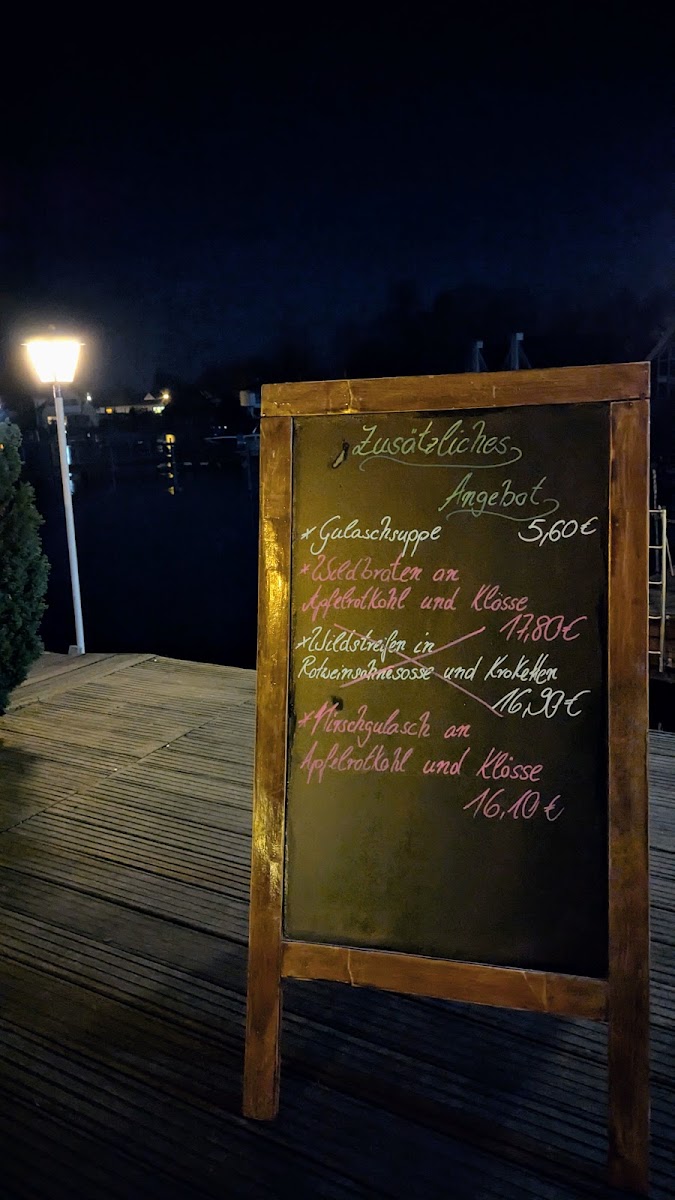 Zusätzliches
Angebot
* Gulaschsuppe 5,60€
* Wildbraten an
Apfelrotkohl und Klösse
17,80€
* Wildstreifen in
Rotweinsahnesosse und Kroketten
16,90€
* Hirschgulasch an
Apfelrotkohl und Klösse
16,10€